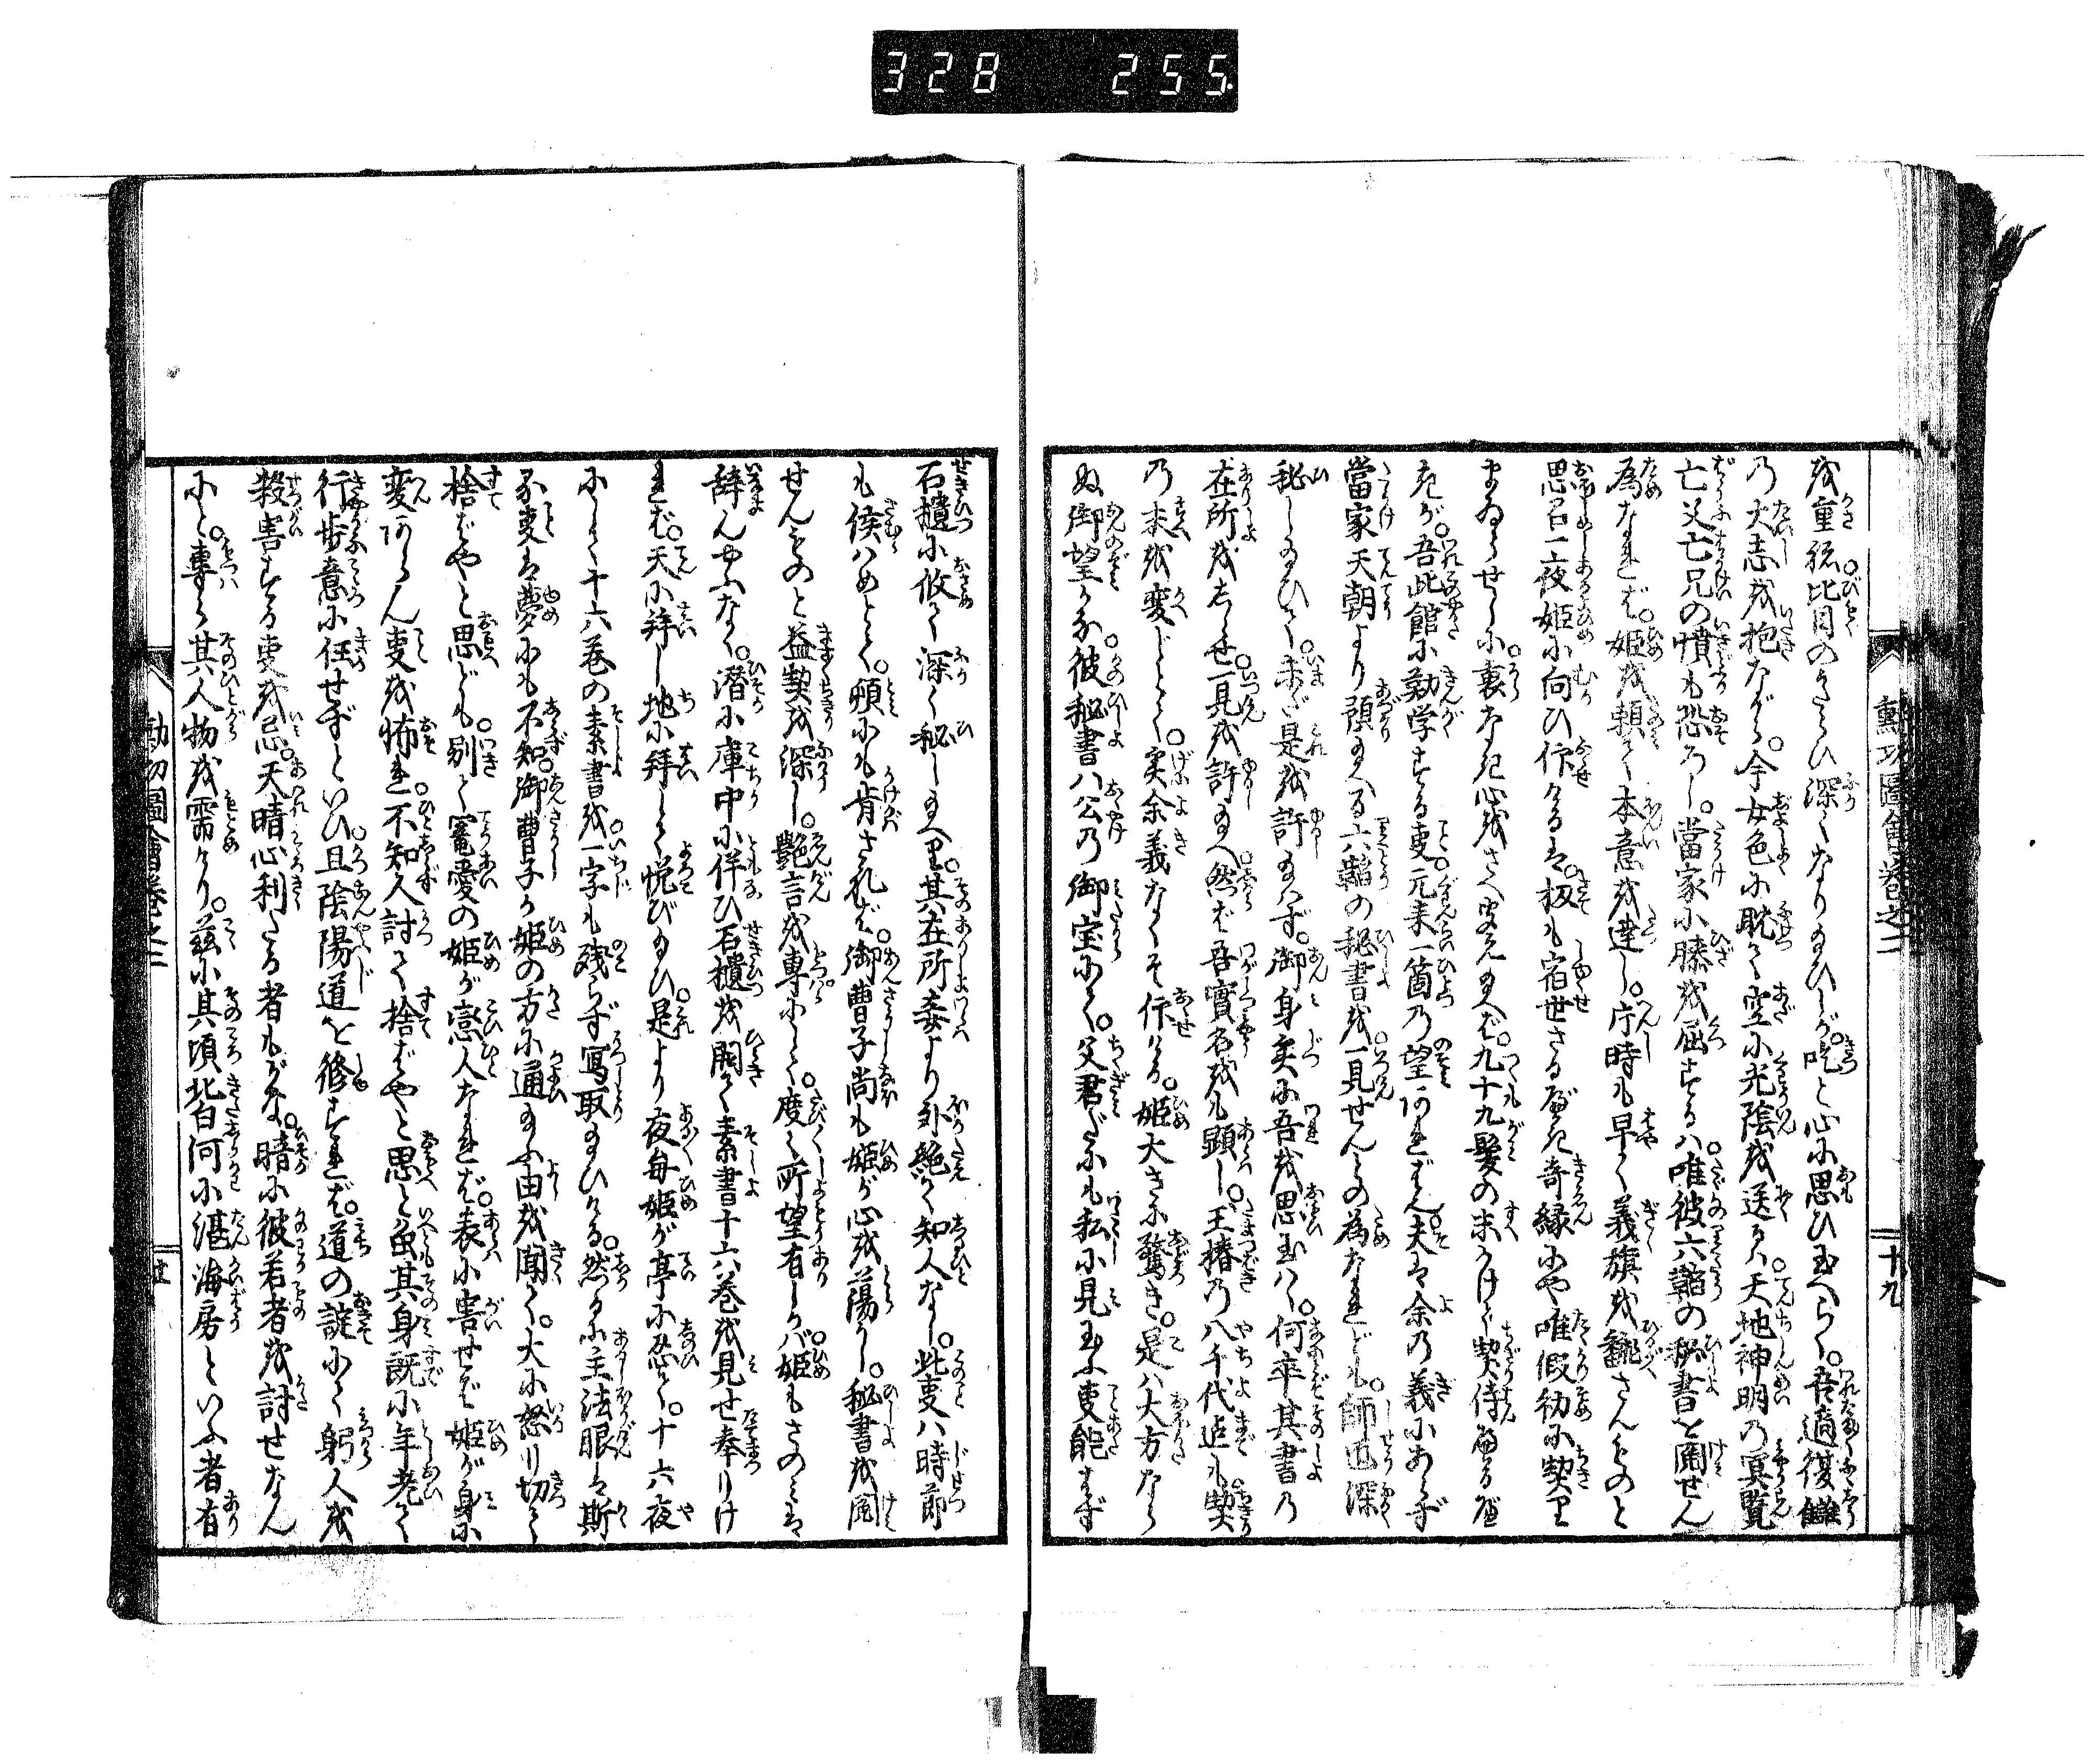 328 255
勲功圖會巻之二
十九
を重ね。比目のかたらひ深くなり給ひしが。屹と心に思ひ玉へらく。吾適復讎
の大志を抱ながら。今女色に耽て空に光陰を送らバ。天地神明の冥覧
亡父亡兄の憤も恐ろし。當家に膝を屈するハ。唯彼六韜の秘書を閲せん
為なれば。姫を頼て本意を達し。片時も早く義旗を飜さんものと
思召一夜姫に向ひ仰けるは。扨も宿世さるべき奇縁にや唯假初に契り
まゐらせしに。裏なき心をさへ見え給へば。九十九髪の末かけて契侍るべ
きが。吾此館に勤学する事。元来一箇の望あればそ。夫は余の義にあらず
當家天朝より預給へる六韜の秘書を。一見せんの為なれども。師匠深く
秘し給ひて。未だ是を許給はず。御身実に吾を思玉はゞ。何卒其書の
在所をしらせ。一見を許給へ。然ば吾實名をも顕し。玉椿の八千代迄も。契
の末を変じとて。実余義なくぞ仰ける。姫大きに驚き。是ハ大方なら
ぬ御望かな。彼秘書ハ公の御宝にて。父君だにも私に見玉ふ事能はず
石櫃に收て深く秘し給へり。其在所妾より外絶て知人なし。此事ハ時節
も候はめとて。頓にも肯されば。御曹子尚も姫が心を蕩かし。秘書を閲
せんものと益契を深し。艶言を専にして。度々所望有しかバ。姫もさのみは
辞んやふなく。潜に庫中に伴ひ石櫃を開て素書十六巻を見せ奉りけ
れば。天に拜し地に拜して悦び給ひ。是より夜毎姫が亭に忍て。十六夜
にして十六巻の素書を。一字も残らず寫取給ひける。然るに主法眼は斯
る事は夢にも不知。御曹子が姫の方に通給ふ由を聞て。大に怒り切て
捨ばやと思ども。別て寵愛の姫が恋人なれば。表に害せば姫が身に
変あらん事を怖れ。不知人討て捨ばやと思と雖其身既に年老て
行歩意に任せずといひ。且陰陽道を修すれば。道の諚にて躬人を
殺害する事を忌。天晴心利たる者もがな。暗に彼若者を討せなん
にと。専ら其人物を需けり。茲に其頃北白河に湛海房といふ者有
勲功圖會巻之二
廿